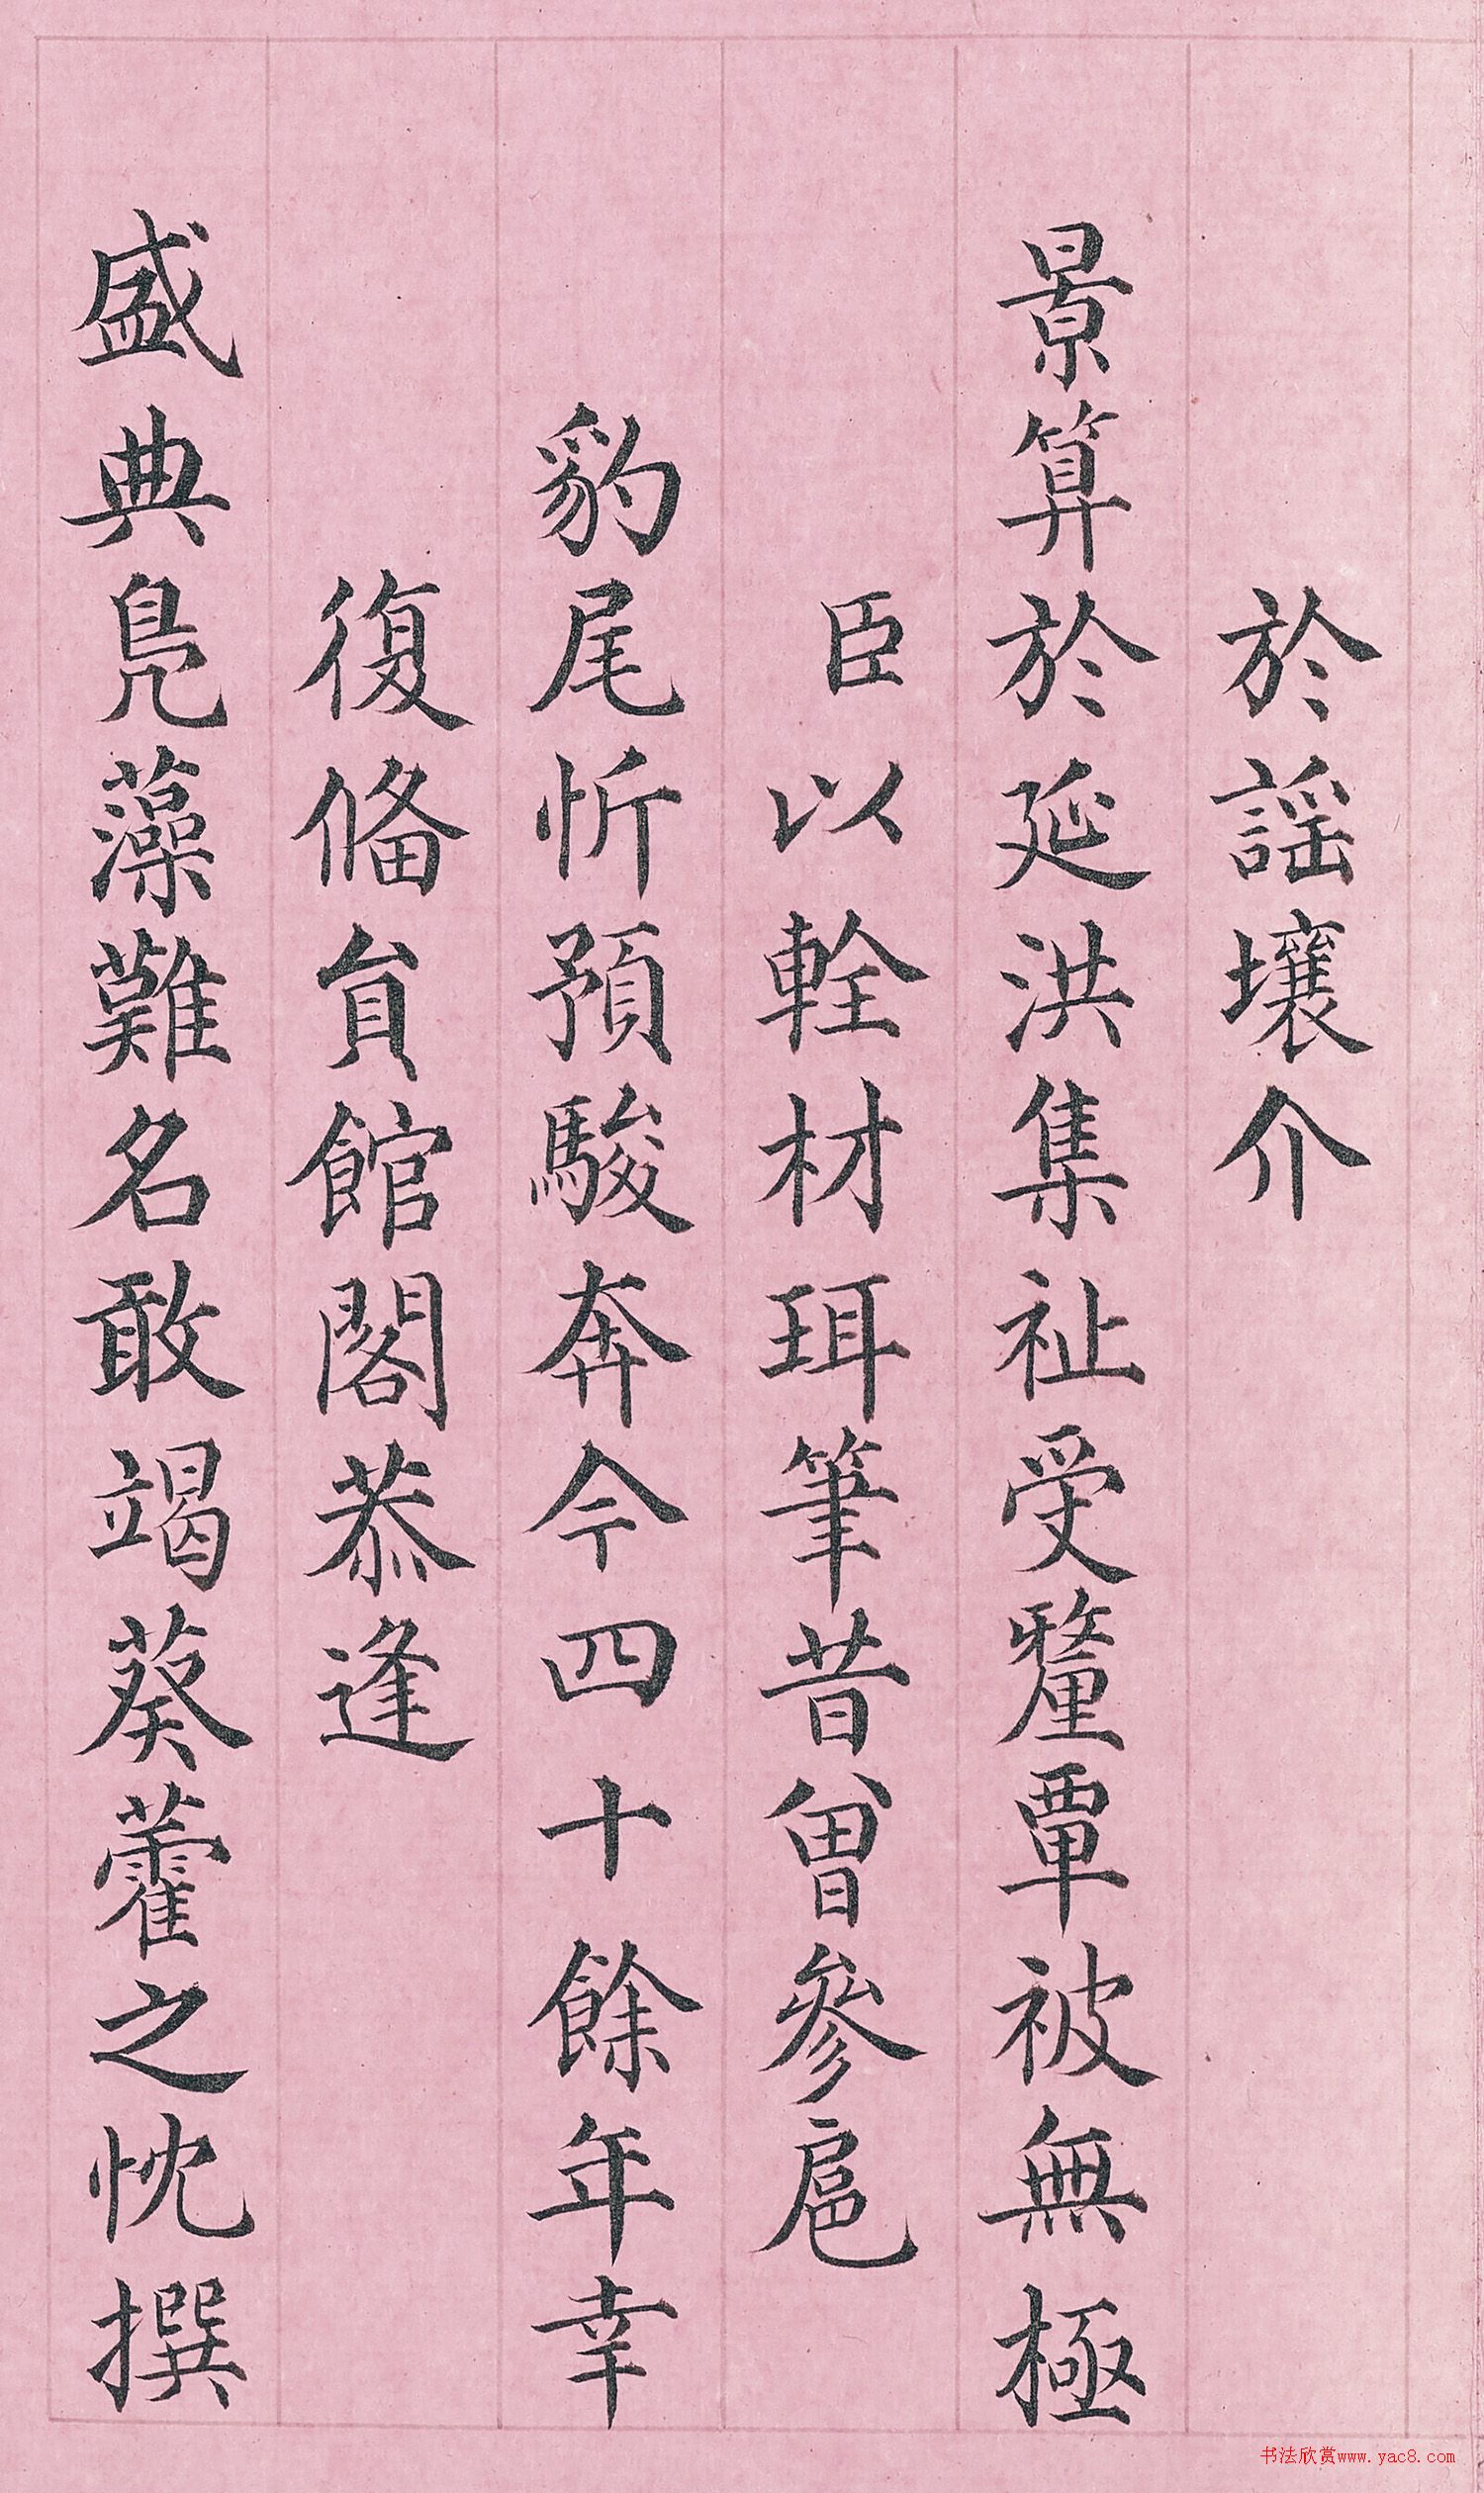 於謡壤介
景算於延洪集祉受釐覃被無極
臣以輇材珥筆昔曾參扈
豹尾忻預駿奔今四十餘年幸
復俻負館閣恭逢
盛典鳧藻難名敢竭葵藿之忱撰
书法欣赏www.yac8.com